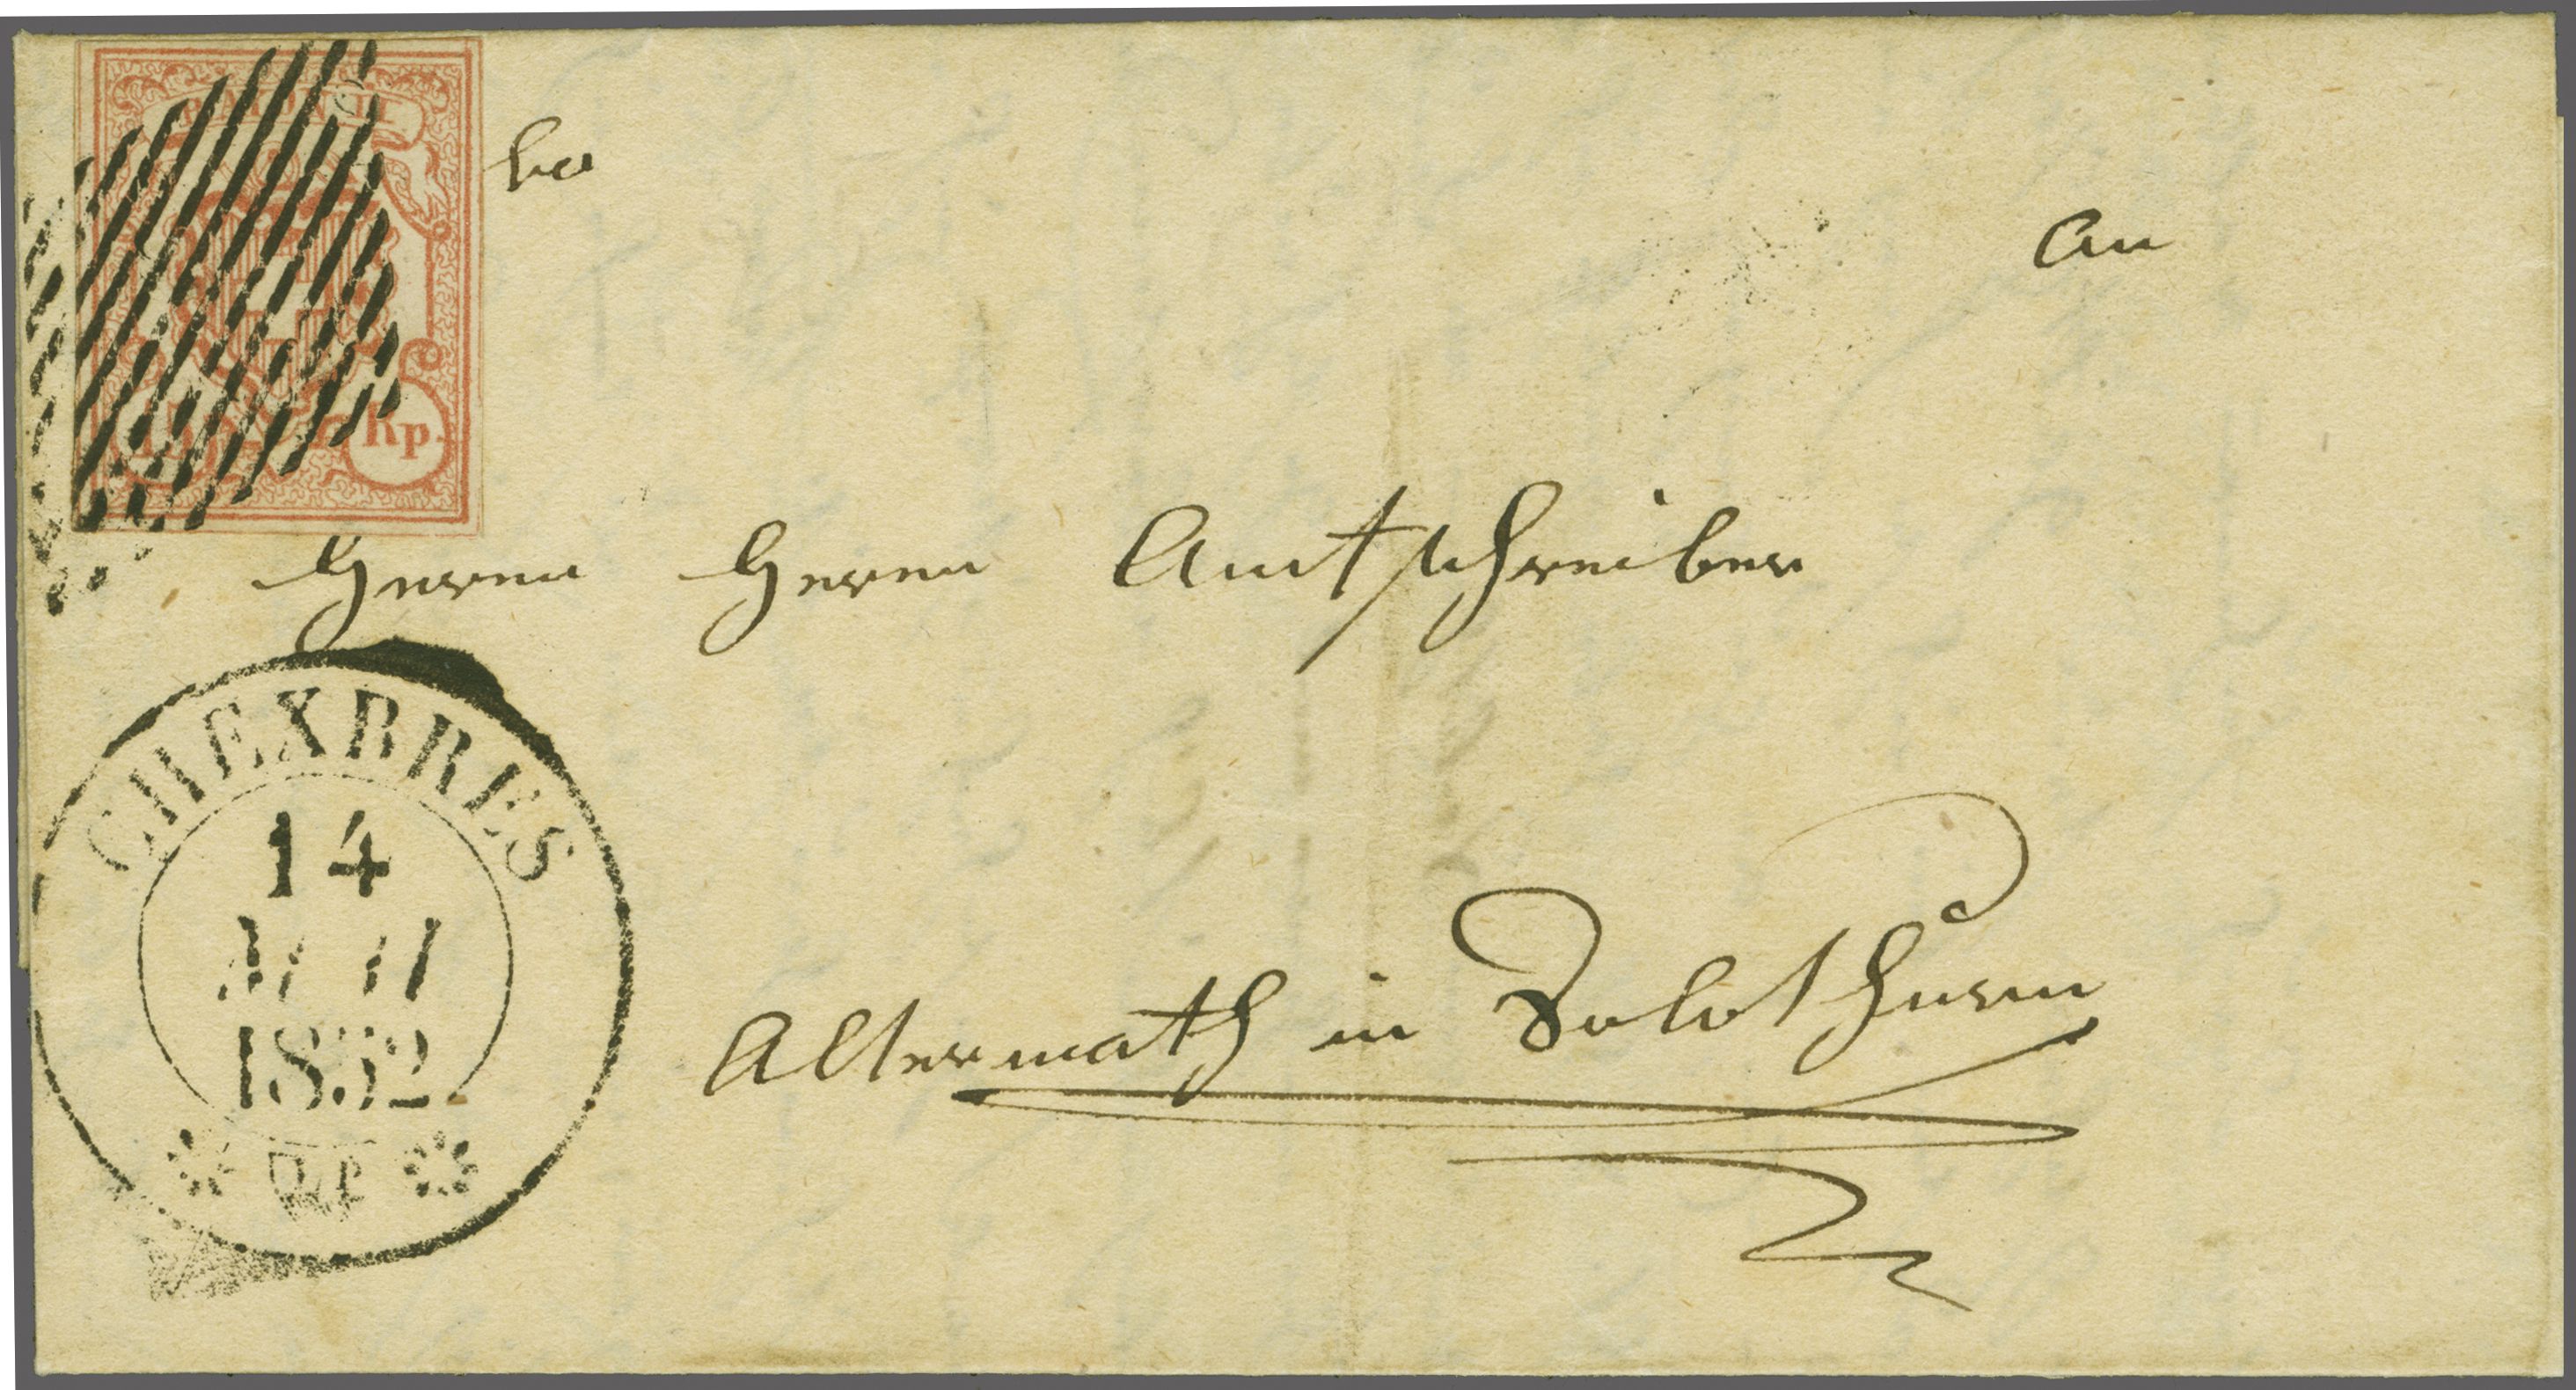 Rp.
An
Herrn Herrn Amtschreiber
Altermath in Solothurn
CHEXBRES
14
1852